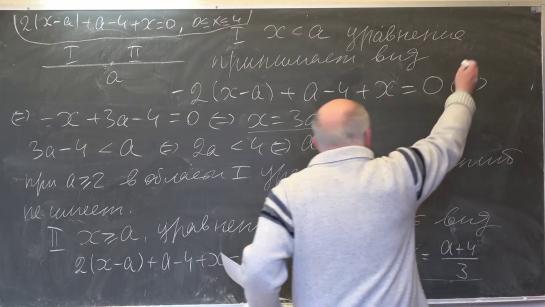 2(x-a)+a-4+x=0, 0≤x≤4
I II
a
I x<a уравнение
принимает вид
-2(x-a)+a-4+x=0
⇔ -x+3a-4=0 ⇔ x=3a
3a-4<a ⇔ 2a<4 ⇔ a
при a≥2 в области I
не имеет.
II x≥a, уравнение вид
2(x-a)+a-4+x = a+4/3